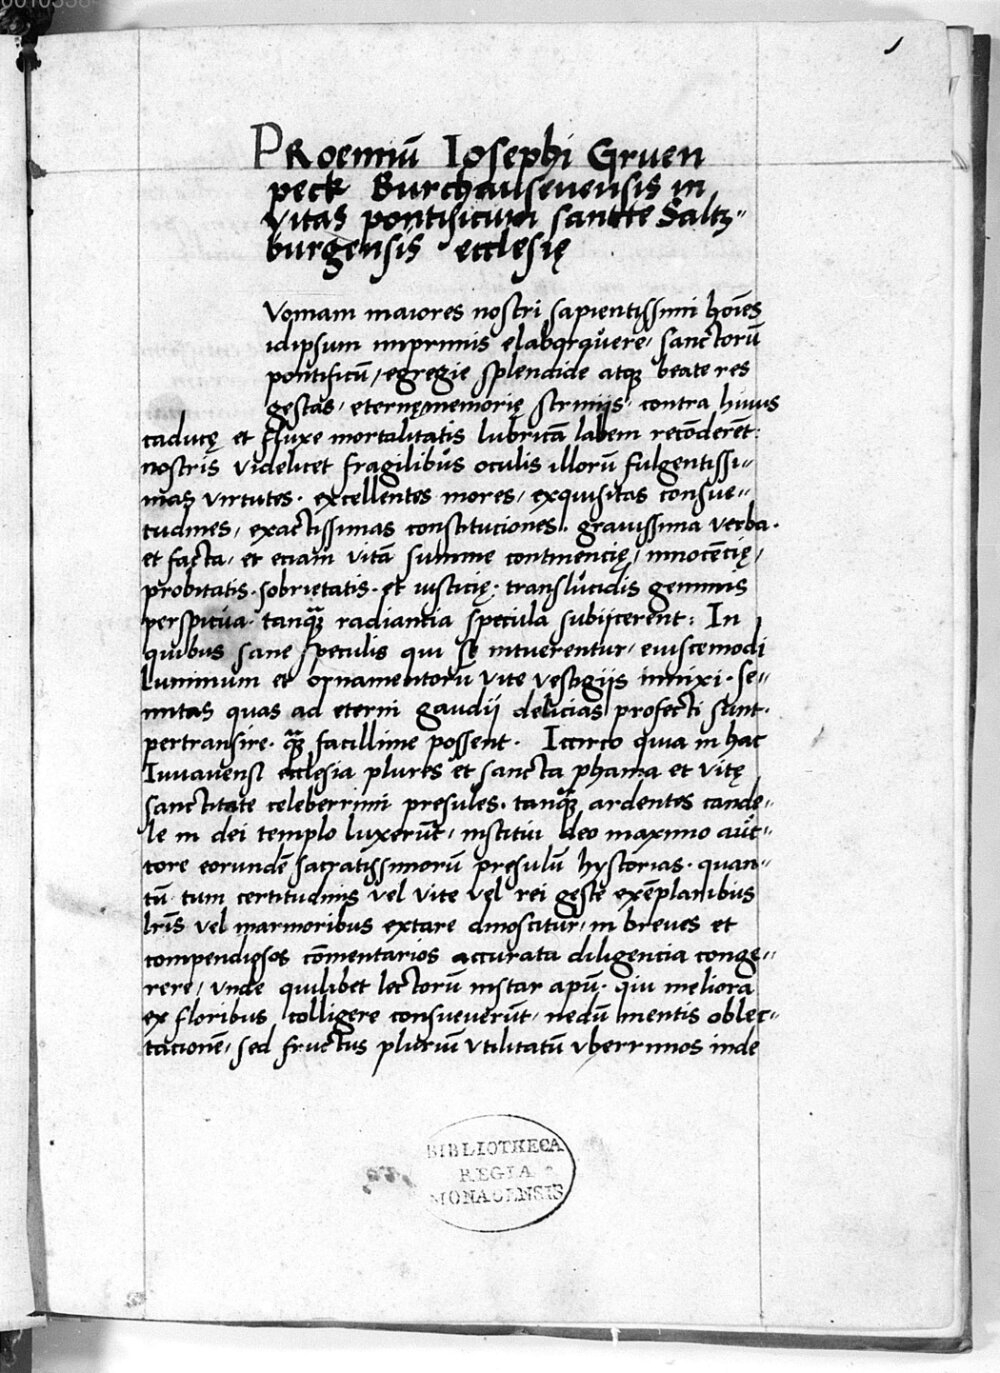 PRoemiū Iosephi Gruen
peck Burchausenensis in
vitas pontificum sancte Saltz-
burgensis ecclesię
Vomam maiores nostri sapientissimi hoīes
idipsum inprimis elaborauere, sanctorū
pontificū, egregie splendide atq̨ beate res
gestas, eternę memorię scriniis, contra huius
caducę et fluxe mortalitatis lubricā labem recōderēt:
nostris videlicet fragilibus oculis illorū fulgentissi-
mas virtutes, excellentes mores, exquisitas consue-
tudines, exactissimas constituciones, grauissima verba.
et facta, et eciam vitā summe continencię, innocēcię,
probitatis, sobrietatis, et iusticię, translucidis gemmis
perspicua, tanq̄ radiancia specula subiicerent: In
quibus sane speculis qui se intuerentur, eiuscemodi
luminum et ornamentorū vite vestigiis innixi, se-
mitas quas ad eterni gaudij delicias profecti sunt.
pertransire, q̄ facillime possent. Iccirco quia in hac
Iuuauensi ecclesia plures et sancta phama et vitę
sanctitate celeberrimi presules, tanq̄ ardentes cande-
le in dei templo luxerūt, institui deo maximo auc-
tore eorundē sacratissimorū presulū hystorias, quan-
tū tum certitudinis vel vite vel rei geste exēplaribus
lr̄is vel marmoribus extare dinoscitur, in breues et
compendiosos cōmentarios accurata diligencia conge-
rere, vnde quilibet lectorū instar apū, qui meliora
ex floribus colligere consueuerūt, nedū mentis oblec-
tacionē, sed fructus pluriū vtilitatū vberrimos inde
BIBLIOTHECA
REGIA
MONACENSIS